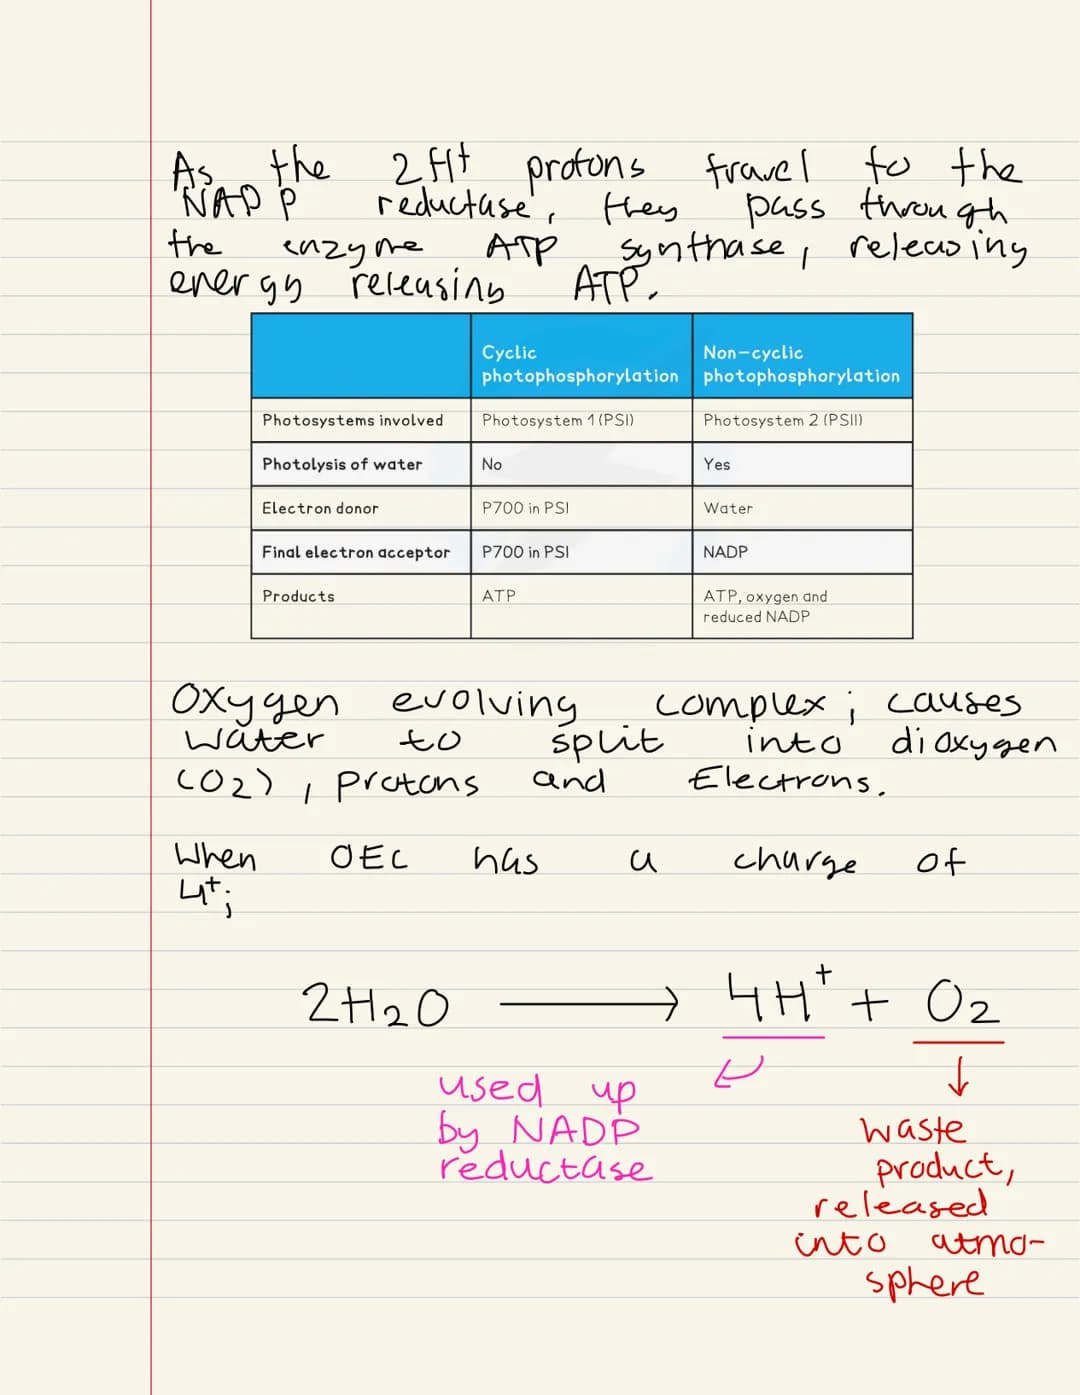 As the 2H+ protons travel to the
NADP reductase, they pass through
the enzyme ATP synthase, releasing
energy releasing ATP.
Cyclic photophosphorylation Non-cyclic photophosphorylation
Photosystems involved Photosystem 1 (PSI) Photosystem 2 (PSII)
Photolysis of water No Yes
Electron donor P700 in PSI Water
Final electron acceptor P700 in PSI NADP
Products ATP ATP, oxygen and reduced NADP
Oxygen evolving complex; causes
water to split into dioxygen
(O2), protons and Electrons.
When OEC has a charge of
4+;
2H2O → 4H+ + O2
used up
by NADP
reductase
waste
product,
released
into atmo-
sphere